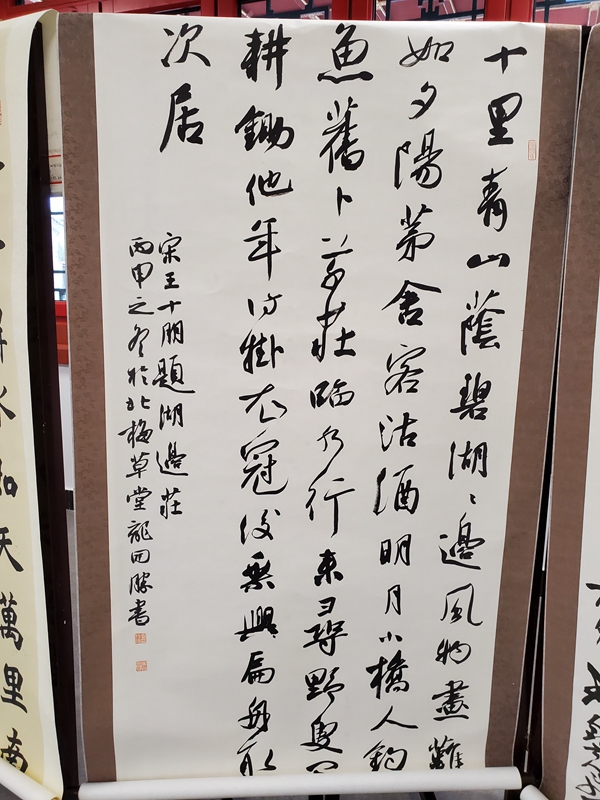 十里青山蔭碧湖〻邊風物畫難
如夕陽茅舍客沽酒明月小橋人釣
魚舊卜草莊臨水行東尋野叟问
耕鋤他年待掛衣冠後乘興扁舟取
次居
宋王十朋題湖邊莊
丙申之冬於北梅草堂龍四勝書
水如天萬里南